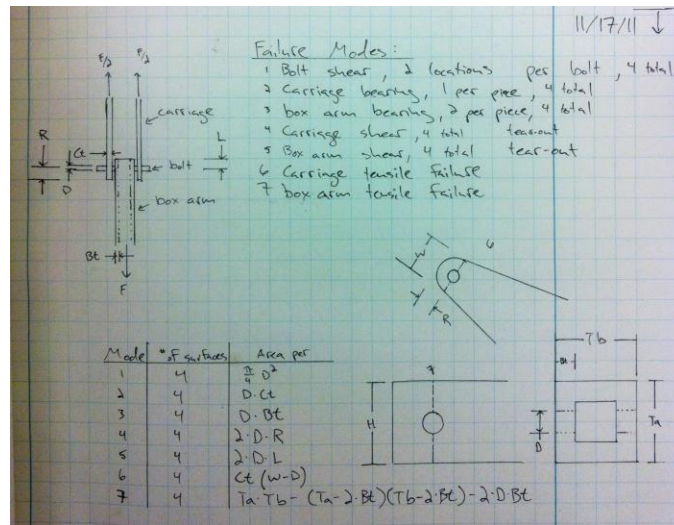 11/17/11
Failure Modes:
1 Bolt shear, 2 locations per bolt, 4 total
2 Carriage bearing, 1 per piece, 4 total
3 box arm bearing, 2 per piece, 4 total
4 Carriage shear, 4 total tear-out
5 Box arm shear, 4 total tear-out
6 Carriage tensile failure
7 box arm tensile failure
F/2 F/2
carriage
R Ct L
bolt
D
box arm
Bt
F
6
W
R
Mode # of surfaces Area per
1 4 π/4 D²
2 4 D·Ct
3 4 D·Bt
4 4 2·D·R
5 4 2·D·L
6 4 Ct (W-D)
7 4 Ta·Tb - (Ta-2·Bt)(Tb-2·Bt) - 2·D·Bt
7
H
Tb
Bt
D
Ta